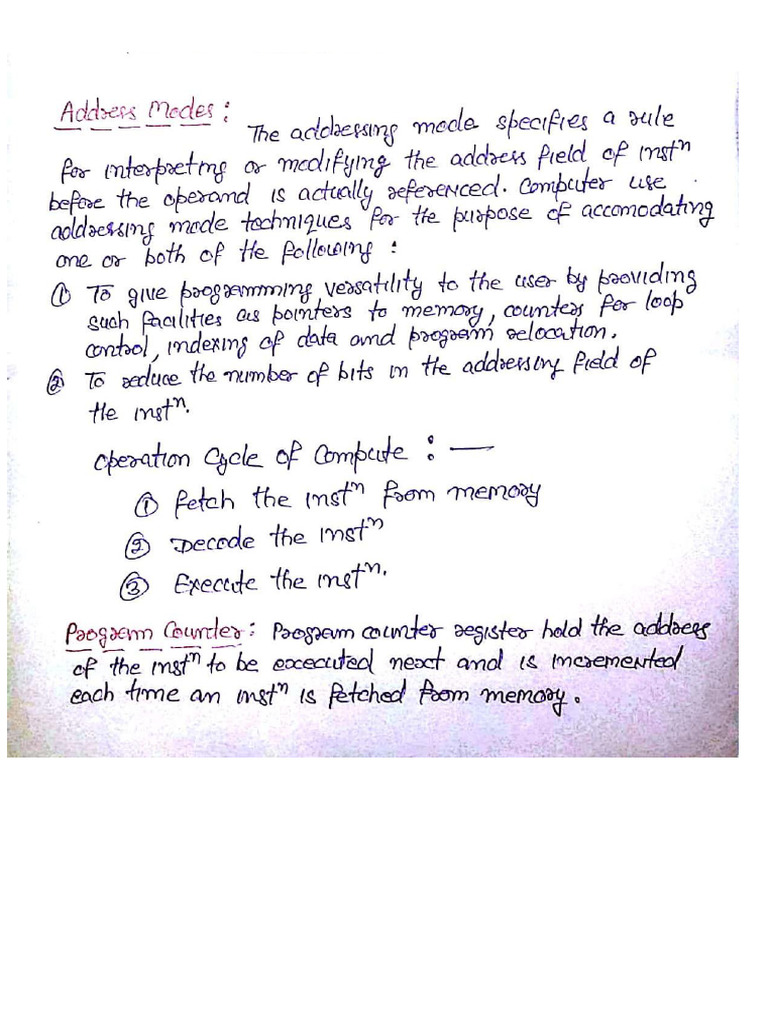 Address Modes:
The addressing mode specifies a rule
for interpreting or modifying the address field of instⁿ
before the operand is actually referenced. Computer use
addressing mode techniques for the purpose of accomodating
one or both of the following:
① To give programming versatility to the user by providing
such facilities as pointers to memory, counters for loop
control, indexing of data and program relocation.
② To reduce the number of bits in the addressing field of
the instⁿ.
Operation Cycle of Compute : —
① Fetch the instⁿ from memory
② Decode the instⁿ
③ Execute the instⁿ.
Program Counter: Program counter register hold the address
of the instⁿ to be executed next and is incremented
each time an instⁿ is fetched from memory.